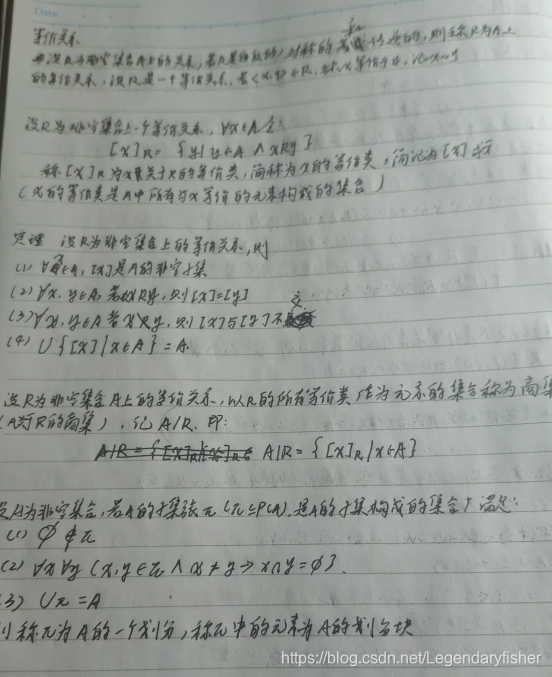 Date
等价关系
设R为非空集合A上的关系,若R是自反的,对称的和传递的,则称R为A上
的等价关系,设R是一个等价关系,若<x,y>∈R,称x等价于y,记x~y
设R为非空集合上一个等价关系,∀x∈A,令
[x]R = {y|y∈A ∧ xRy}
称[x]R为x关于R的等价类,简称为x的等价类,简记为[x]
(x的等价类是A中所有与x等价的元素构成的集合)
定理 设R为非空集合上的等价关系,则
(1) ∀x∈A, [x]是A的非空子集
(2) ∀x,y∈A, 若xRy,则[x]=[y]
(3) ∀x,y∈A 若xRy,则[x]与[y]不交
(4) ∪{[x]|x∈A}=A.
设R为非空集合A上的等价关系,以R的所有等价类作为元素的集合称为商集
(A对R的商集),记A/R,即:
A/R={[x]R|x∈A}
设A为非空集合,若A的子集族π(π⊆P(A),是A的子集构成的集合)满足:
(1) ∅∉π
(2) ∀x∀y(x,y∈π∧x≠y→x∩y=∅).
(3) ∪π=A
则称π为A的一个划分,称π中的元素为A的划分块
https://blog.csdn.net/Legendaryfisher